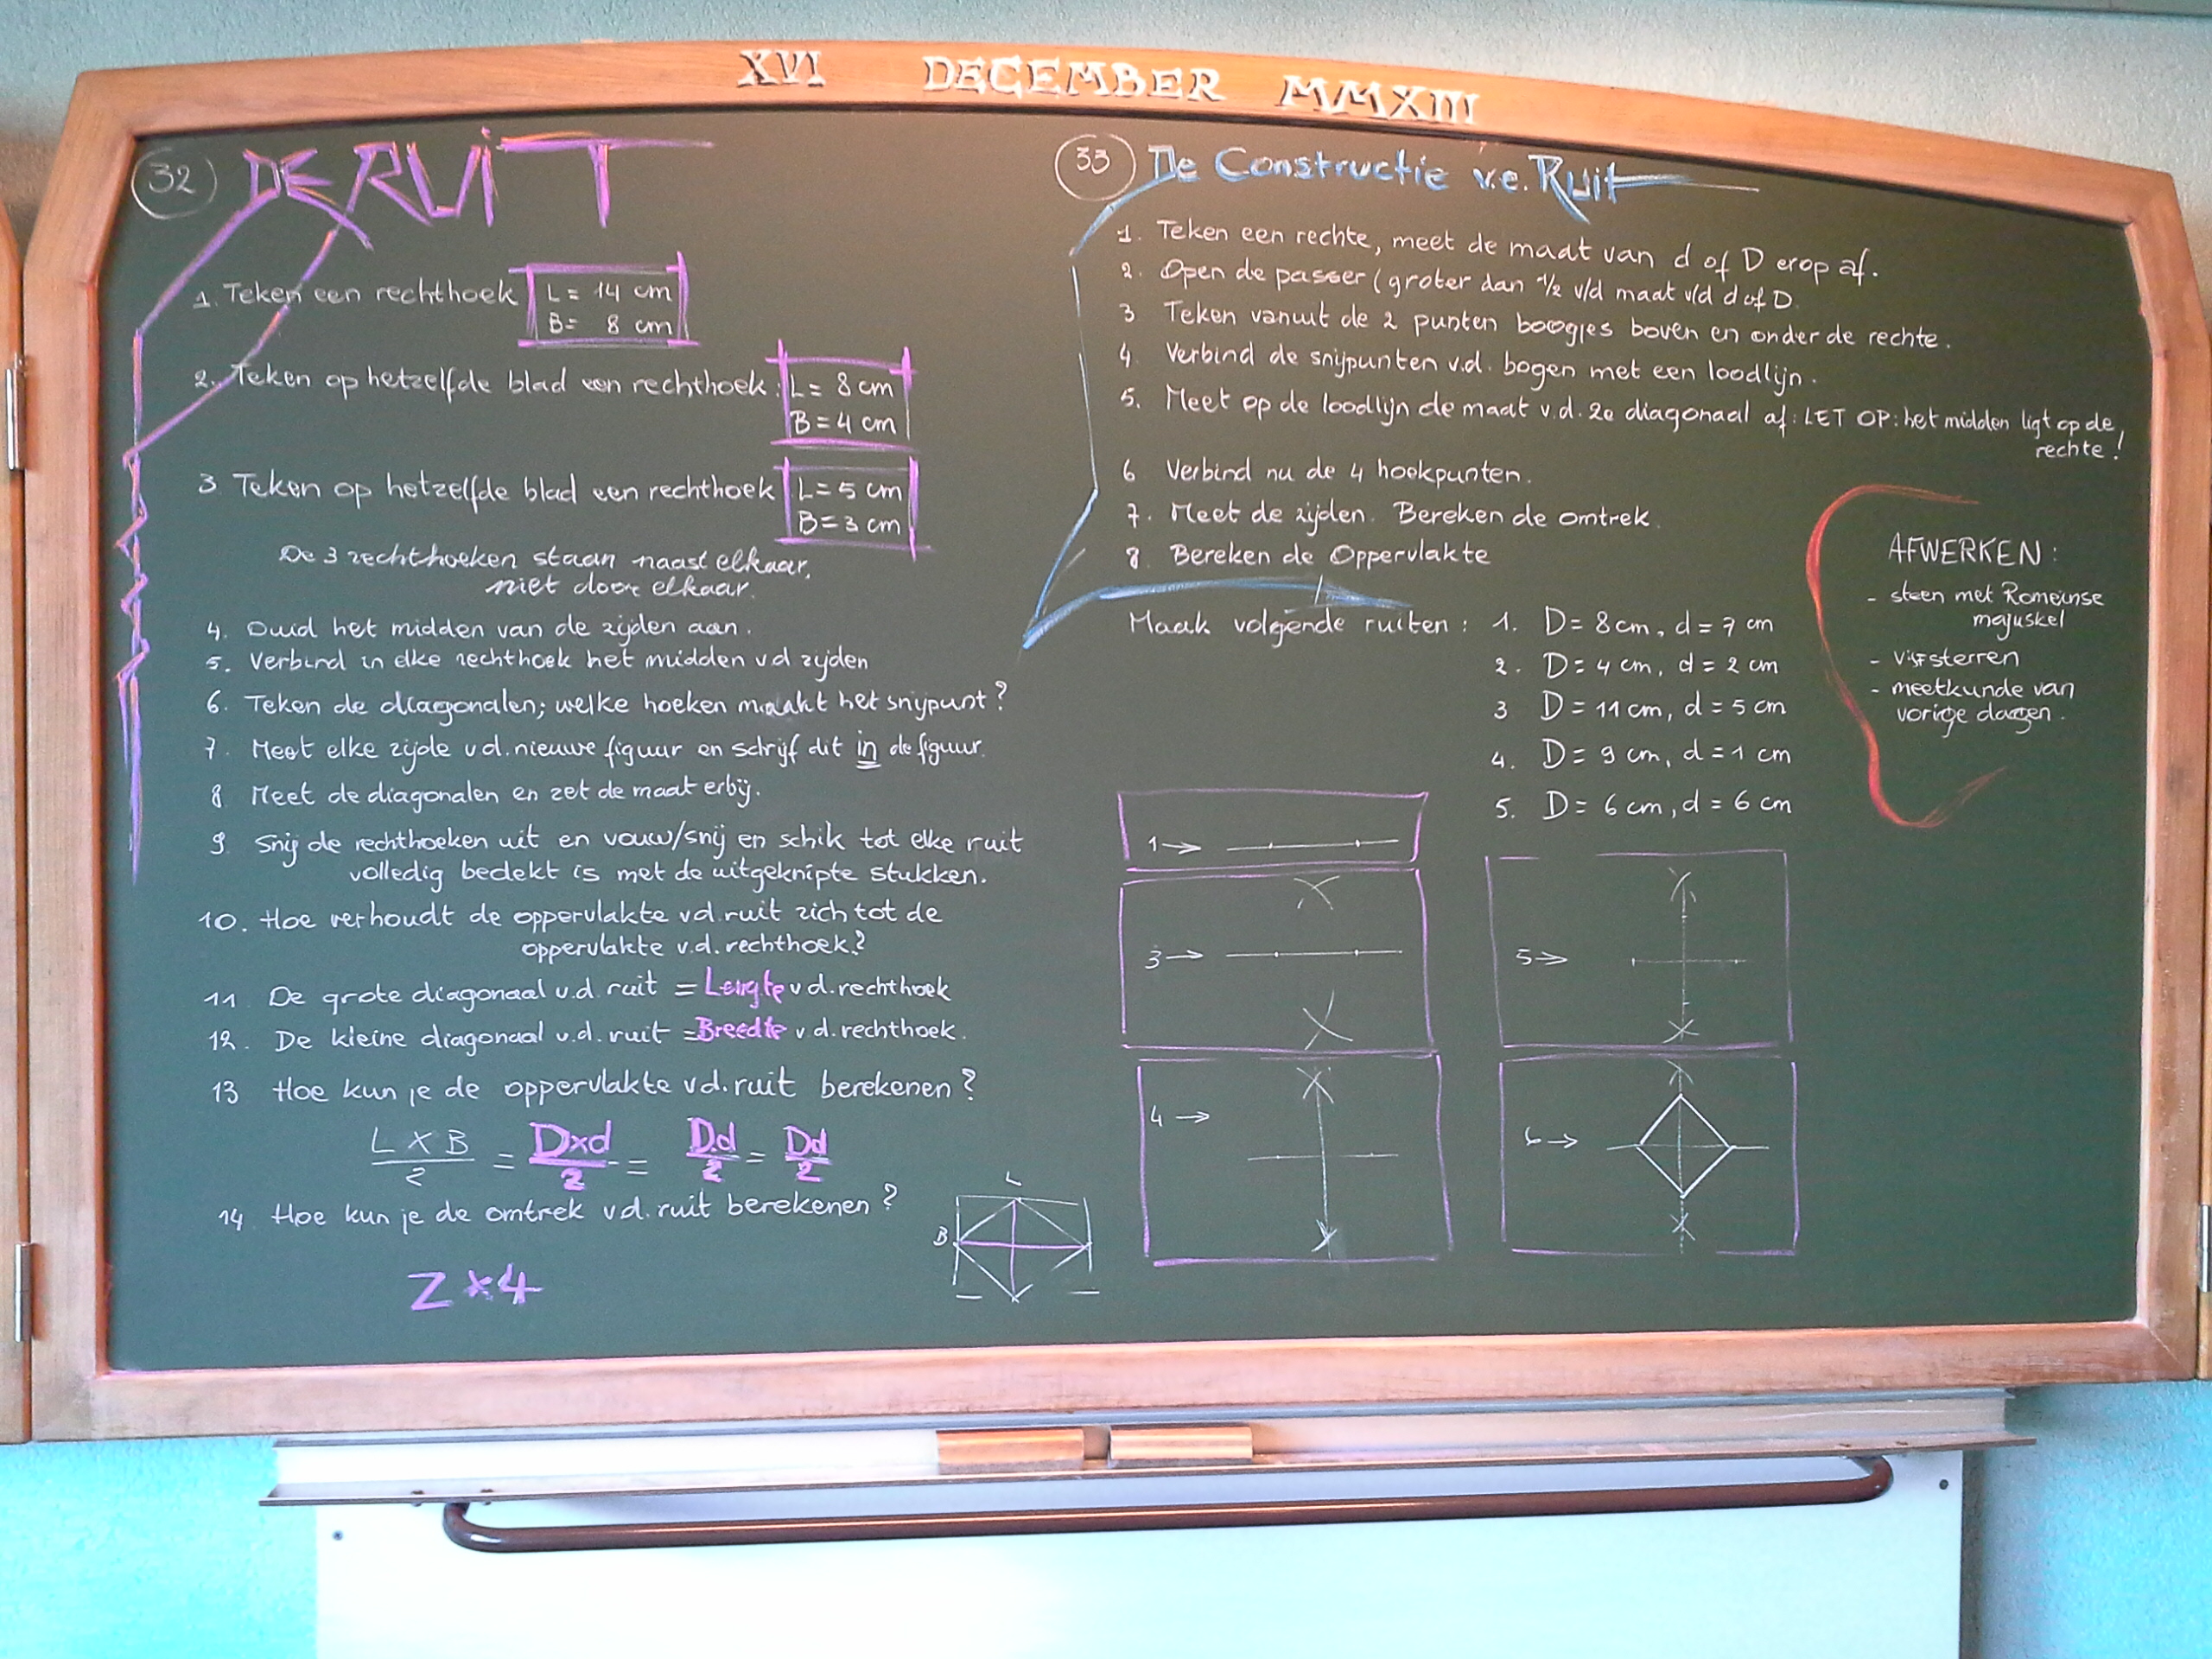 XVI DECEMBER MMXIII
32 DE RUIT
1. Teken een rechthoek L = 14 cm
B = 8 cm
2. Teken op hetzelfde blad een rechthoek: L = 8 cm
B = 4 cm
3 Teken op hetzelfde blad een rechthoek L = 5 cm
B = 3 cm
De 3 rechthoeken staan naast elkaar,
niet door elkaar.
4. Duid het midden van de zijden aan.
5. Verbind in elke rechthoek het midden vd zijden
6. Teken de diagonalen; welke hoeken maakt het snijpunt?
7. Meet elke zijde v.d. nieuwe figuur en schrijf dit in de figuur.
8 Meet de diagonalen en zet de maat erbij.
9 Snij de rechthoeken uit en vouw/snij en schik tot elke ruit
volledig bedekt is met de uitgeknipte stukken.
10. Hoe verhoudt de oppervlakte vd. ruit zich tot de
oppervlakte v.d. rechthoek?
11 De grote diagonaal v.d. ruit = Lengte v d. rechthoek
12. De kleine diagonaal v.d. ruit = Breedte v.d. rechthoek.
13 Hoe kun je de oppervlakte vd. ruit berekenen?
L X B / 2 = Dxd / 2 = D.d / 2 = Dd / 2
14 Hoe kun je de omtrek vd. ruit berekenen?
Z x 4
L
B
33 De Constructie v.e. Ruit
1. Teken een rechte, meet de maat van d of D erop af.
2. Open de passer (groter dan 1/2 v/d maat v/d d of D.
3 Teken vanuit de 2 punten boogjes boven en onder de rechte.
4. Verbind de snijpunten v.d. bogen met een loodlijn.
5. Meet op de loodlijn de maat v.d. 2e diagonaal af: LET OP: het midden ligt op de
rechte!
6 Verbind nu de 4 hoekpunten.
7. Meet de zijden. Bereken de omtrek.
8. Bereken de Oppervlakte
Maak volgende ruiten: 1. D = 8 cm, d = 7 cm
2. D = 4 cm, d = 2 cm
3 D = 11 cm, d = 5 cm
4. D = 9 cm, d = 1 cm
5. D = 6 cm, d = 6 cm
1 →
3 →
4 →
5 →
6 →
AFWERKEN:
- steen met Romeinse
majuskel
- sterren
- meetkunde van
vorige dagen.